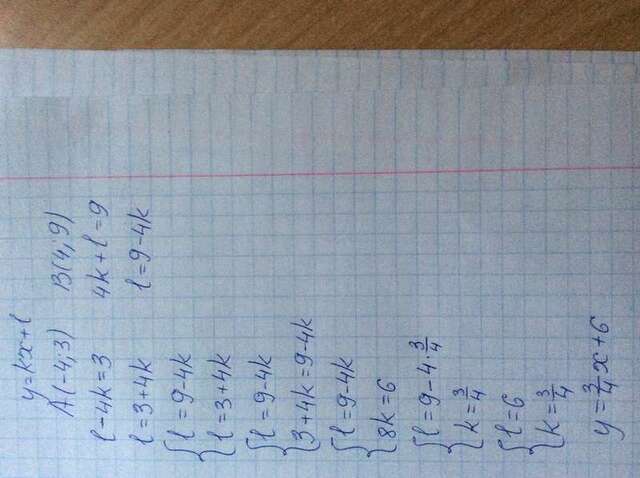 y=kx+l
A(-4;3) B(4;9)
l-4k=3 4k+l=9
l=3+4k l=9-4k
{l=9-4k
{l=3+4k
{l=9-4k
{3+4k=9-4k
{l=9-4k
{8k=6
{l=9-4·3/4
{k=3/4
{l=6
{k=3/4
y=3/4x+6